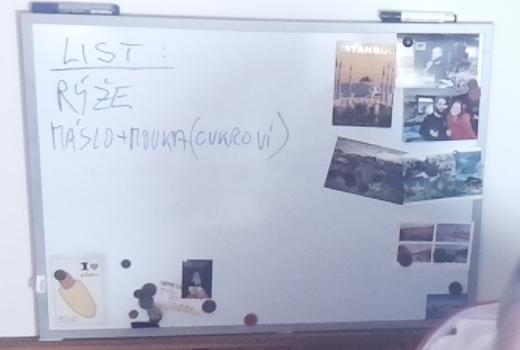 LIST:
RÝŽE
MÁSLO+MOUKA(CUKROVÍ)
ISTANBUL
I